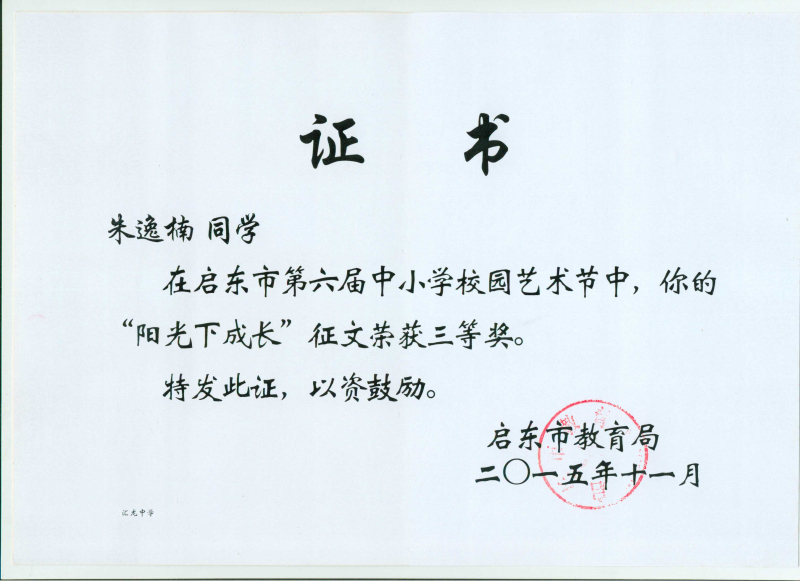 证 书
朱逸楠 同学
在启东市第六届中小学校园艺术节中，你的
“阳光下成长”征文荣获三等奖。
特发此证，以资鼓励。
启东市教育局
二〇一五年十一月
汇龙中学